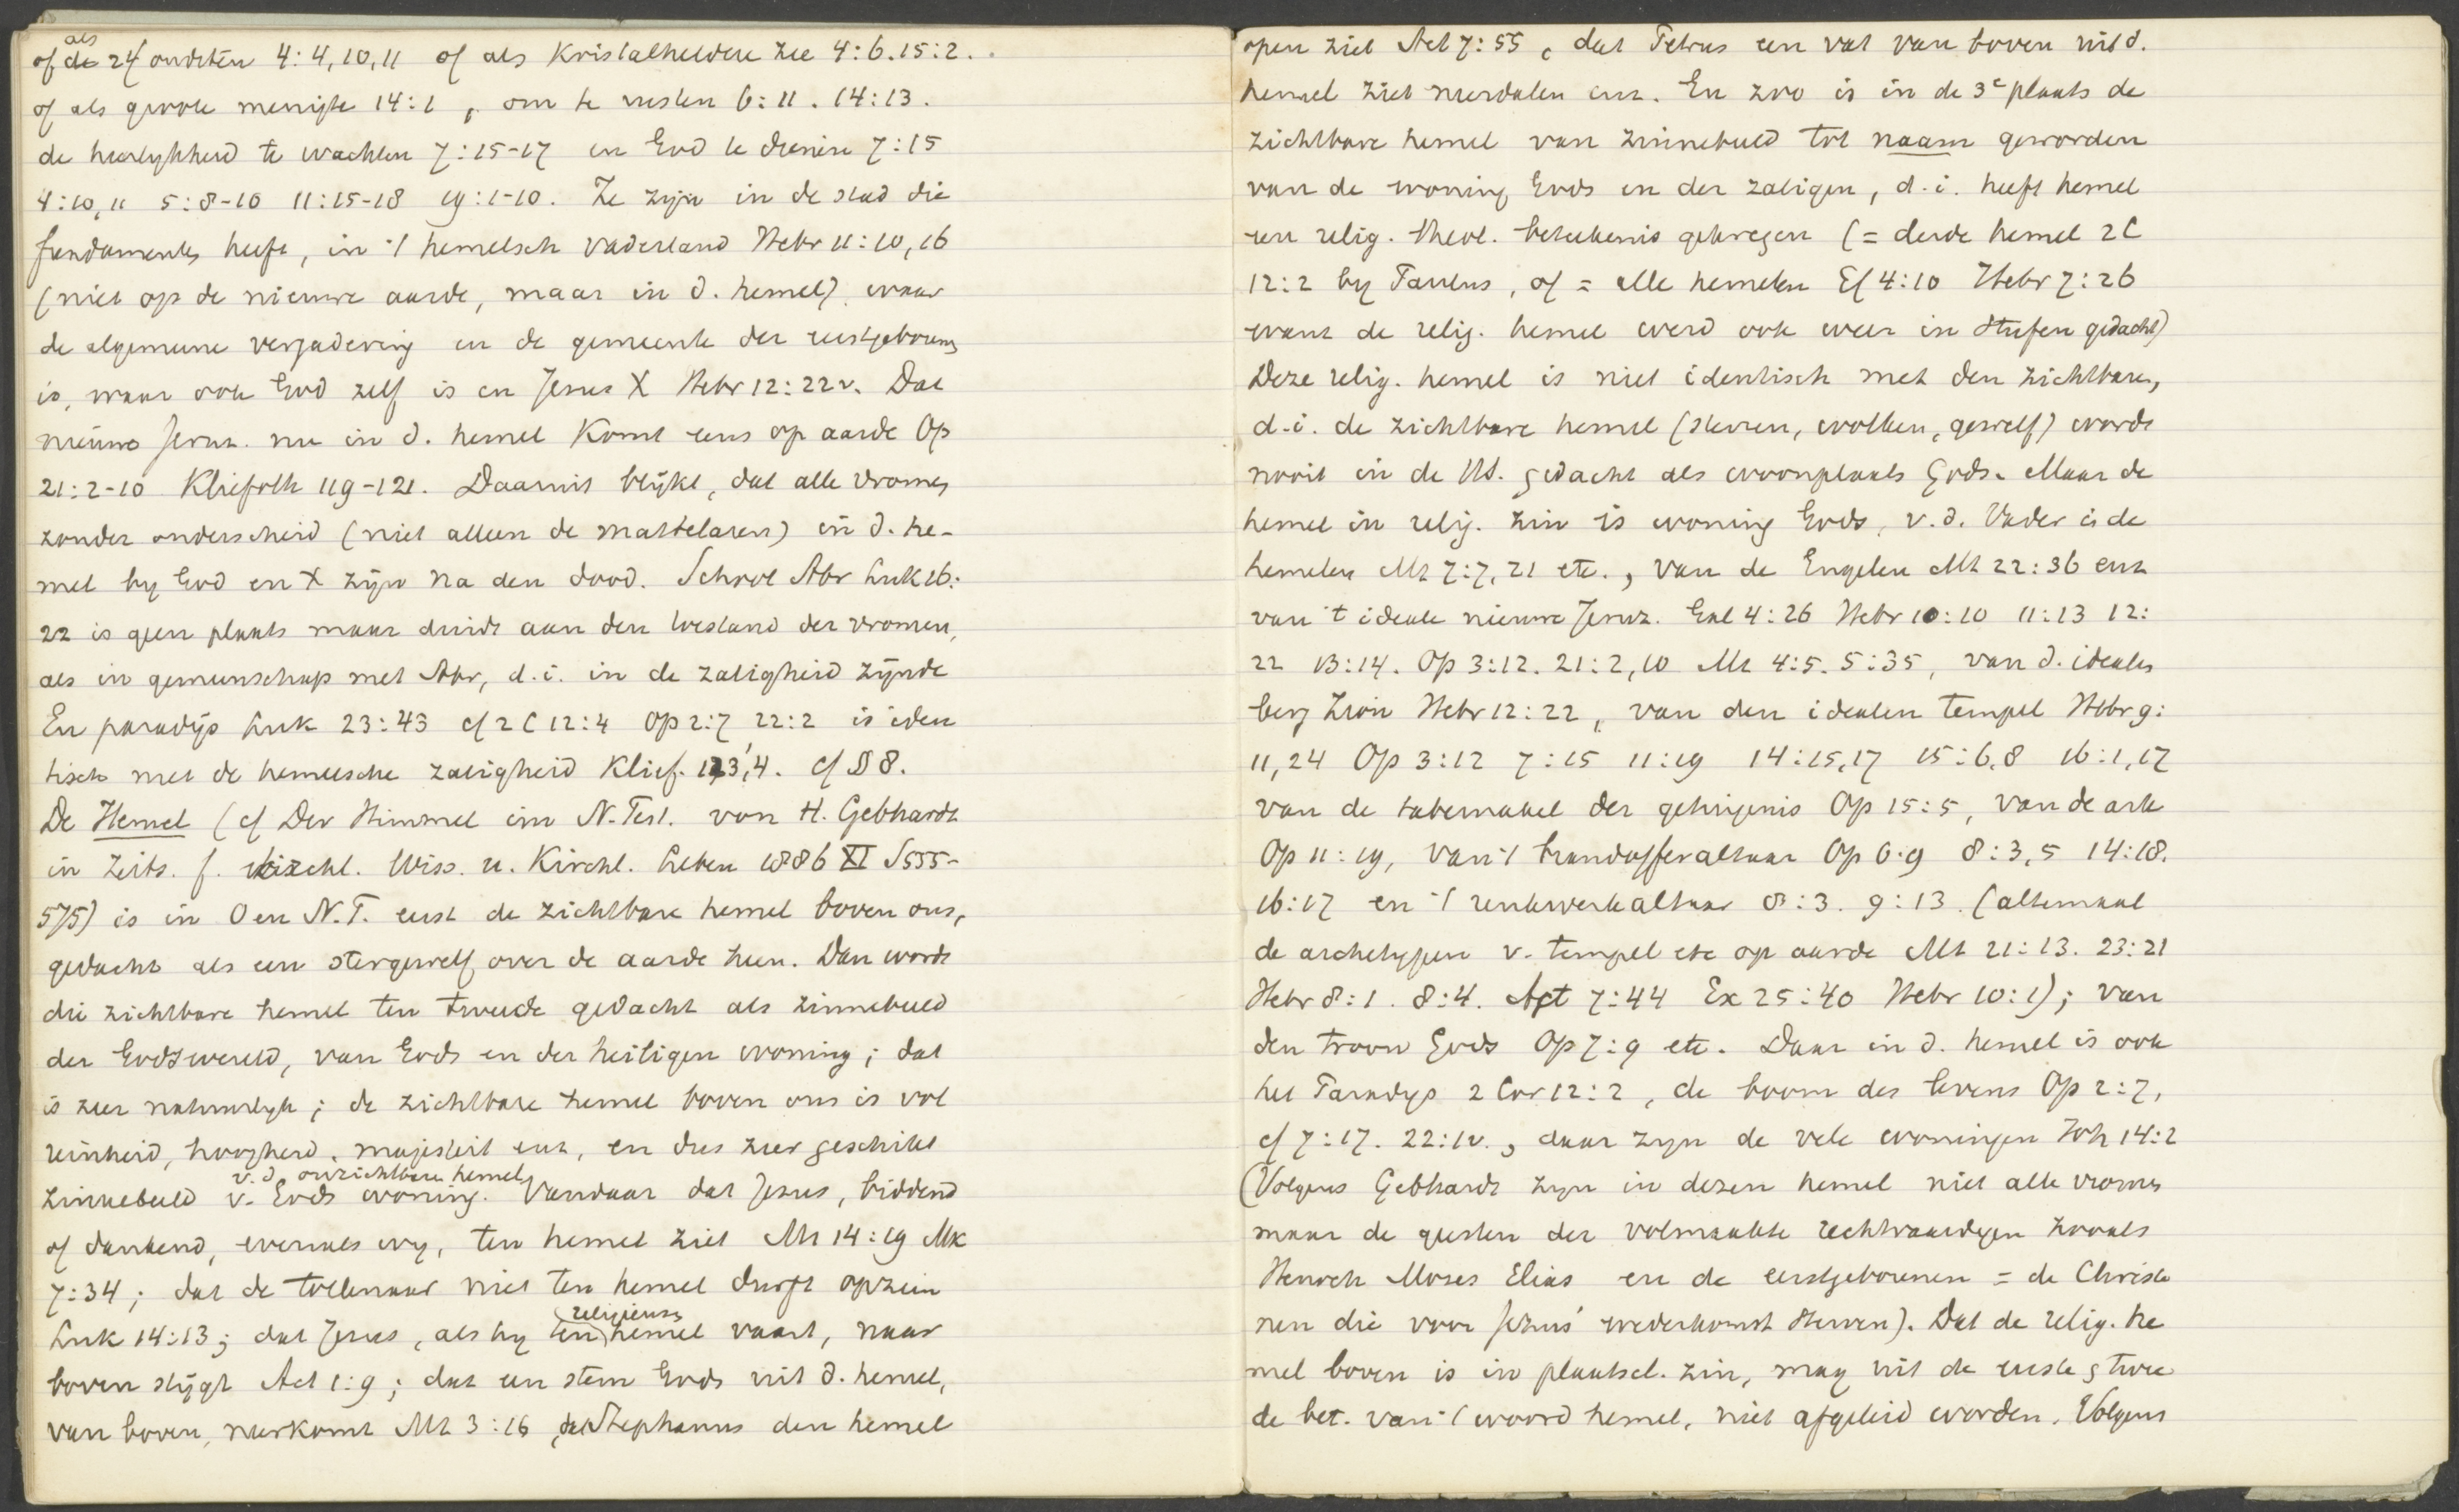 of als 24 oudsten 4:4,10,11 of als Kristalheldere zee 4:6.15:2.
of als groote menigte 14:1, om te rusten 6:11. 14:13.
de heerlykheid te wachten 7:15-17 en God te dienen 7:15
4:10,11 5:8-10 11:15-18 19:1-10. Ze zijn in de stad die
fundamenten heeft, in 't hemelsch vaderland Hebr 11:10,16
(niet op de nieuwe aarde, maar in d. hemel) waar
de algemeene vergadering en de gemeente der eerstgeborenen
is, waar ook God zelf is en Jezus X Hebr 12:22v. Dat
nieuwe Jeruz. nu in d. hemel Komt eens op aarde Op
21:2-10 Kliefoth 119-121. Daaruit blijkt, dat alle vromen
zonder onderscheid (niet alleen de martelaren) in d. he-
mel by God en X zijn na den dood. Schoot Abr Luk 16:
22 is geen plaats maar duidt aan den toestand der vromen,
als in gemeenschap met Abr, d.i. in de zaligheid zijnde
En paradijs Luk 23:43 cf 2 C 12:4 Op 2:7 22:2 is iden
tisch met de hemelsche zaligheid Klief. 123,4. cf § 8.
De Hemel (cf Der Himmel im N. Test. von H. Gebhardt
in Zeits. f. kirchl. Wiss. u. Kirchl. Leben 1886 XI S 555-
575) is in O en N.T. eerst de zichtbare hemel boven ons,
gedacht als een stergewelf over de aarde heen. Dan wordt
die zichtbare hemel ten tweede gedacht als zinnebeeld
der Godswereld, van Gods en der heiligen woning; dat
is zeer natuurlyk; de zichtbare hemel boven ons is vol
reinheid, hoogheid, majesteit enz, en dus zeer geschikt
v.d. onzichtbaren hemel
zinnebeeld v. Gods woning. Vandaar dat Jezus, biddend
of dankend, evenals wy, ten hemel ziet Mt 14:19 Mk
7:34; dat de tollenaar niet ten hemel durft opzien
religieusen
Luk 14:13; dat Jezus, als hy ten hemel vaart, naar
boven stijgt Act 1:9; dat een stem Gods uit d. hemel,
van boven, neerkomt Mt 3:16, dat Stephanus den hemel
open ziet Act 7:55, dat Petrus een vat van boven uit d.
hemel ziet neerdalen enz. En zoo is in de 3e plaats de
zichtbare hemel van zinnebeeld tot naam geworden
van de woning Gods en der zaligen, d.i. heeft hemel
een relig. theol. beteekenis gekregen (= derde hemel 2 C
12:2 by Paulus, of = alle hemelen Ef 4:10 Hebr 7:26
want de relig. hemel werd ook weer in Stufen gedacht)
Deze relig. hemel is niet identisch met den zichtbaren,
d.i. de zichtbare hemel (sterren, wolken, gewelf) wordt
nooit in de HS. gedacht als woonplaats Gods. Maar de
hemel in relig. zin is woning Gods, v.d. Vader i. de
hemelen Mt 7:7,21 etc., van de Engelen Mt 22:36 enz
van 't ideale nieuwe Jeruz. Gal 4:26 Hebr 10:10 11:13 12:
22 13:14. Op 3:12. 21:2,10 Mt 4:5. 5:35, van d. idealen
berg Zion Hebr 12:22, van den idealen tempel Hebr 9:
11,24 Op 3:12 7:15 11:19 14:15,17 15:6,8 16:1,17
van de tabernakel der getuigenis Op 15:5, van de ark
Op 11:19, van 't brandofferaltaar Op 6:9 8:3,5 14:18.
16:17 en 't reukwerkaltaar 8:3. 9:13. (altemaal
de archetypen v. tempel etc op aarde Mt 21:13. 23:21
Hebr 8:1. 8:4. Act 7:44 Ex 25:40 Hebr 10:1); van
den troon Gods Op 7:9 etc. Daar in d. hemel is ook
het Paradys 2 Cor 12:2, de boom des levens Op 2:7,
cf 7:17. 22:1v., daar zyn de vele woningen Joh 14:2
(Volgens Gebhardt zyn in dezen hemel niet alle vromen
maar de geesten der volmaakte rechtvaardigen zooals
Henoch Mozes Elias en de eerstgeborenen = de Christe
nen die voor Jezus' wederkomst sterven). Dat de relig. he
mel boven is in plaatsel. zin, mag uit de eerste & twee
de bet. van 't woord hemel, niet afgeleid worden. Volgens